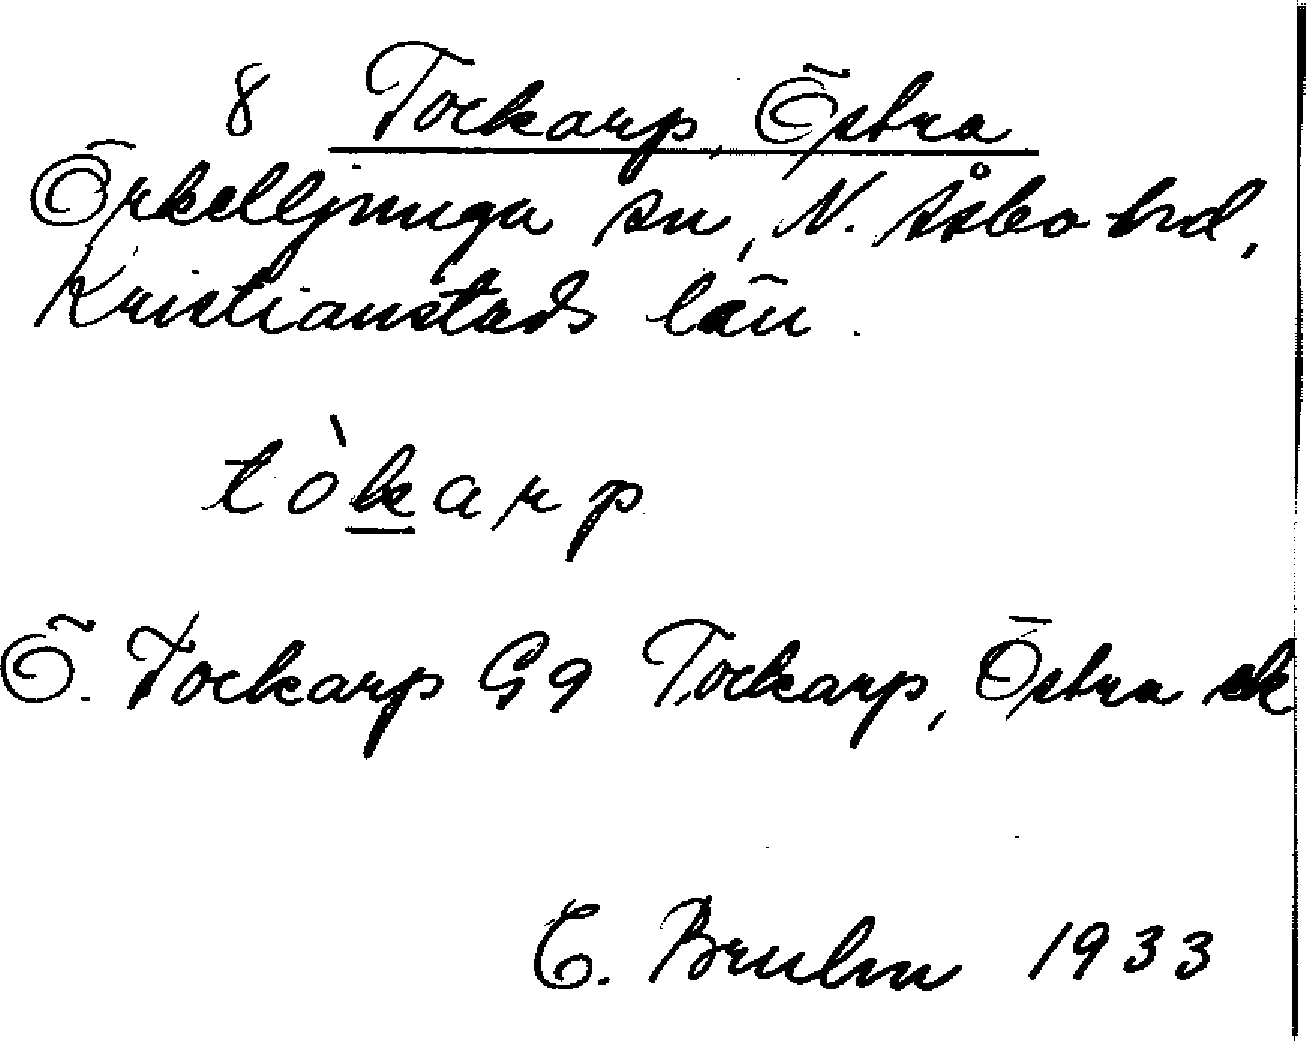 8 Tockarp, Östra
Örkelljunga sn, N. Åsbo hd,
Kristianstads län.
tòkarp
Ö. Tockarp G9 Tockarp, Östra ek
C. Bruhn 1933